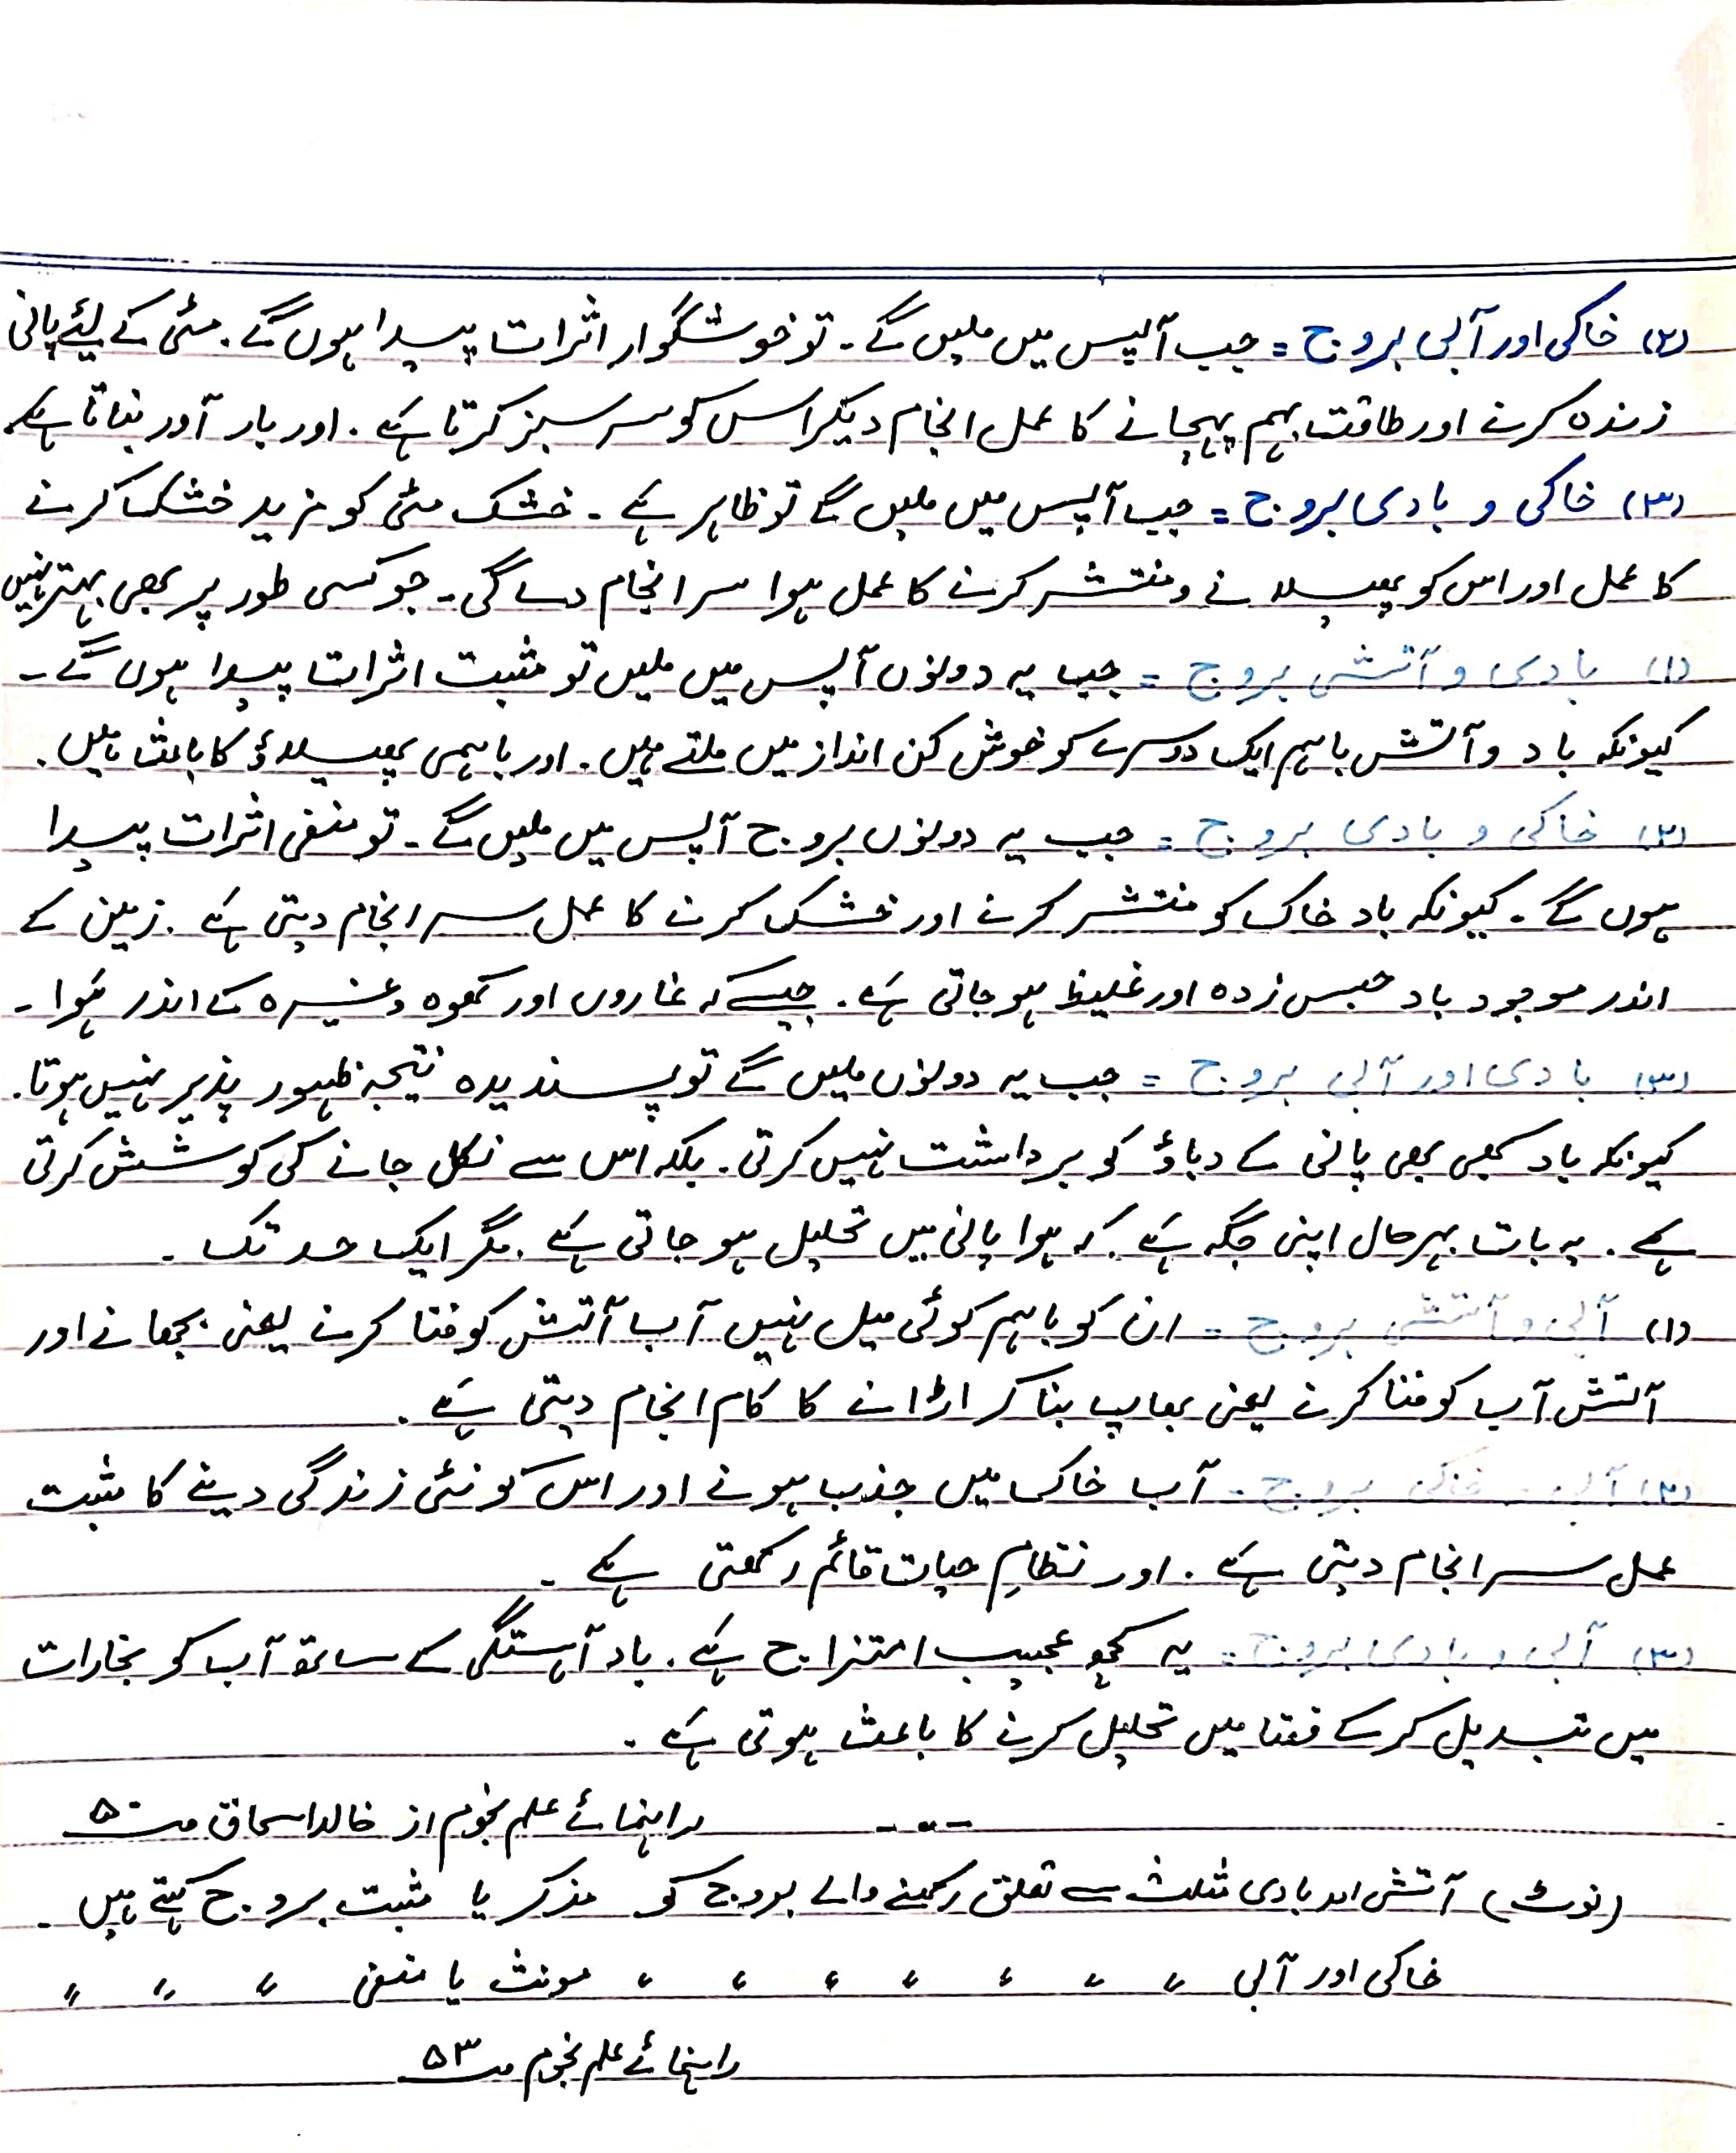 (۲) خاکی اور آبی بروج = جب آپس میں ملیں گے۔ تو خوشگوار اثرات پیدا ہوں گے۔ مٹی کے لیئے پانی
زندہ کرنے اور طاقت بہم پہچانے کا عمل انجام دیکر اس کو سرسبز کرتا ہے۔ اور بار آور بناتا ہے۔
(۳) خاکی و بادی بروج = جب آپس میں ملیں گے تو ظاہر ہے۔ خشک مٹی کو مزید خشک کرنے
کا عمل اور اس کو پھیلانے و منتشر کرنے کا عمل ہوا سرانجام دے گی۔ جو کسی طور پر بھی بہتر نہیں
(۱) بادی و آتشی بروج = جب یہ دونوں آپس میں ملیں تو مثبت اثرات پیدا ہوں گے۔
کیونکہ باد و آتش باہم ایک دوسرے کو خوش کن انداز میں ملتے ہیں۔ اور باہمی پھیلاؤ کا باعث ہیں۔
(۲) خاکی و بادی بروج = جب یہ دونوں بروج آپس میں ملیں گے۔ تو منفی اثرات پیدا
ہوں گے۔ کیونکہ باد خاک کو منتشر کرنے اور خشک کرنے کا عمل سرانجام دیتی ہے۔ زمین کے
اندر موجود باد حبس زدہ اور غلیظ ہو جاتی ہے۔ جیسے کہ غاروں اور کھوہ وغیرہ کے اندر ہوا۔
(۳) بادی اور آبی بروج = جب یہ دونوں ملیں گے تو پسندیدہ نتیجہ ظہور پذیر نہیں ہوتا۔
کیونکہ باد کبھی بھی پانی کے دباؤ کو برداشت نہیں کرتی۔ بلکہ اس سے نکل جانے کی کوشش کرتی
ہے۔ یہ بات بہرحال اپنی جگہ ہے کہ ہوا پانی میں تحلیل ہو جاتی ہے۔ مگر ایک حد تک۔
(۱) آبی و آتشی بروج = ان کو باہم کوئی میل نہیں آب آتش کو فنا کرنے یعنی بجھانے اور
آتش آب کو فنا کرنے یعنی بھاپ بنا کر اڑانے کا کام انجام دیتی ہے۔
(۲) آبی و خاکی بروج = آب خاک میں جذب ہونے اور اس کو نئی زندگی دینے کا مثبت
عمل سرانجام دیتی ہے۔ اور نظامِ حیات قائم رکھتی ہے۔
(۳) آبی و بادی بروج = یہ کچھ عجیب امتزاج ہے۔ باد آہستگی کے ساتھ آب کو بخارات
میں تبدیل کر کے فضا میں تحلیل کرنے کا باعث ہوتی ہے۔
--- راہنمائے علم نجوم از خالد اسحاق صـ ۵۰
(نوٹ) آتشی اور بادی مثلث سے تعلق رکھنے والے بروج کو مذکر یا مثبت بروج کہتے ہیں۔
خاکی اور آبی ״ ״ ״ ״ ״ ״ ״ مونث یا منفی ״ ״ ״
راہنمائے علم نجوم صـ ۵۳